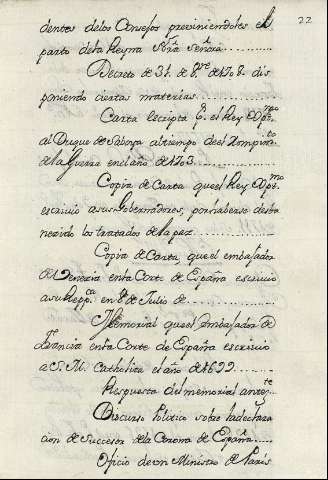 22
dentes de los Consejos previniendoles el
parto de la Reyna Nra Señora
Decreto de 31. de 8bre de 1708. dis
poniendo ciertas materias
Carta escripta el Rey
al Duque de Saboya al tiempo de el
de la Guerra en el año de 1703
Copia de Carta que el Rey
escrivio a sus Gobernadores, por haberse desba
nezido los tratados de la paz
Copia de Carta, que el embajador
de Venezia en la Corte de España escrivio
a su Reppca en 8 de Julio de
Memorial que el embajador de
Francia en la Corte de España escrivio
a S. M. Catholica el año de 1622
Respuesta del memorial antege
Discurso Politico sobre la declara
cion de Successor de la Corona de España
Oficio de un Ministro de Paris